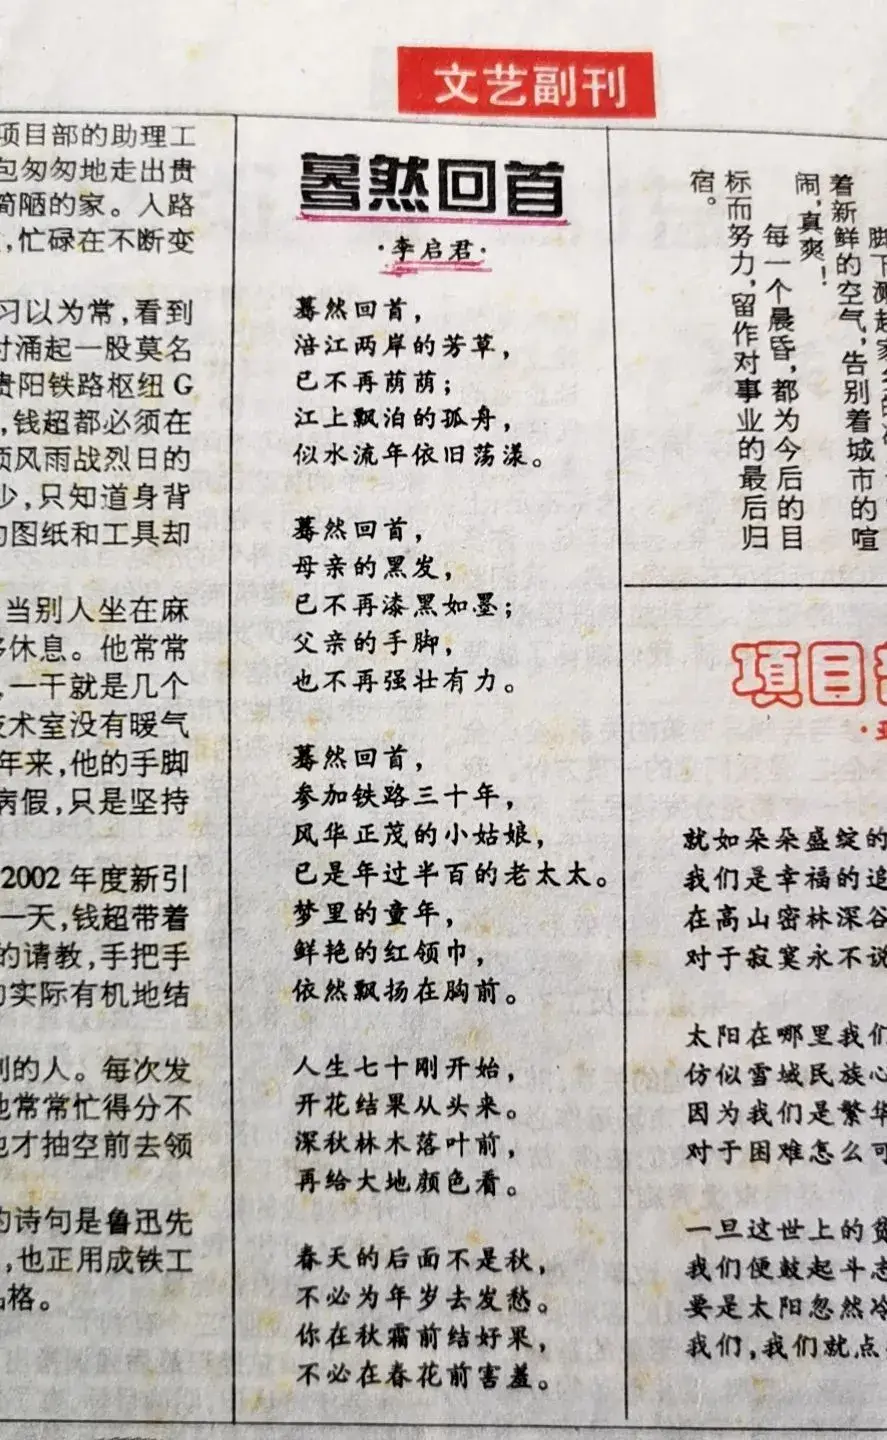 文艺副刊
项目部的助理工
包匆匆地走出贵
简陋的家。人路
,忙碌在不断变
习以为常,看到
时涌起一股莫名
贵阳铁路枢纽 G
,钱超都必须在
顶风雨战烈日的
少,只知道身背
的图纸和工具却
当别人坐在麻
够休息。他常常
,一干就是几个
技术室没有暖气
年来,他的手脚
病假,只是坚持
2002 年度新引
一天,钱超带着
的请教,手把手
的实际有机地结
别的人。每次发
他常常忙得分不
他才抽空前去领
的诗句是鲁迅先
,也正用成铁工
风格。
蓦然回首
·李启君·
蓦然回首,
涪江两岸的芳草,
已不再荫荫;
江上飘泊的孤舟,
似水流年依旧荡漾。
蓦然回首,
母亲的黑发,
已不再漆黑如墨;
父亲的手脚,
也不再强壮有力。
蓦然回首,
参加铁路三十年,
风华正茂的小姑娘,
已是年过半百的老太太。
梦里的童年,
鲜艳的红领巾,
依然飘扬在胸前。
人生七十刚开始,
开花结果从头来。
深秋林木落叶前,
再给大地颜色看。
春天的后面不是秋,
不必为年岁去发愁。
你在秋霜前结好果,
不必在春花前害羞。
着新鲜的空气,告别着城市的喧
闹,真爽!
每一个晨昏,都为今后的目
标而努力,留作对事业的最后归
宿。
項目
就如朵朵盛绽的
我们是幸福的追
在高山密林深谷
对于寂寞永不说
太阳在哪里我们
仿似雪域民族心
因为我们是繁华
对于困难怎么可
一旦这世上的贫
我们便鼓起斗志
要是太阳忽然冷
我们,我们就点